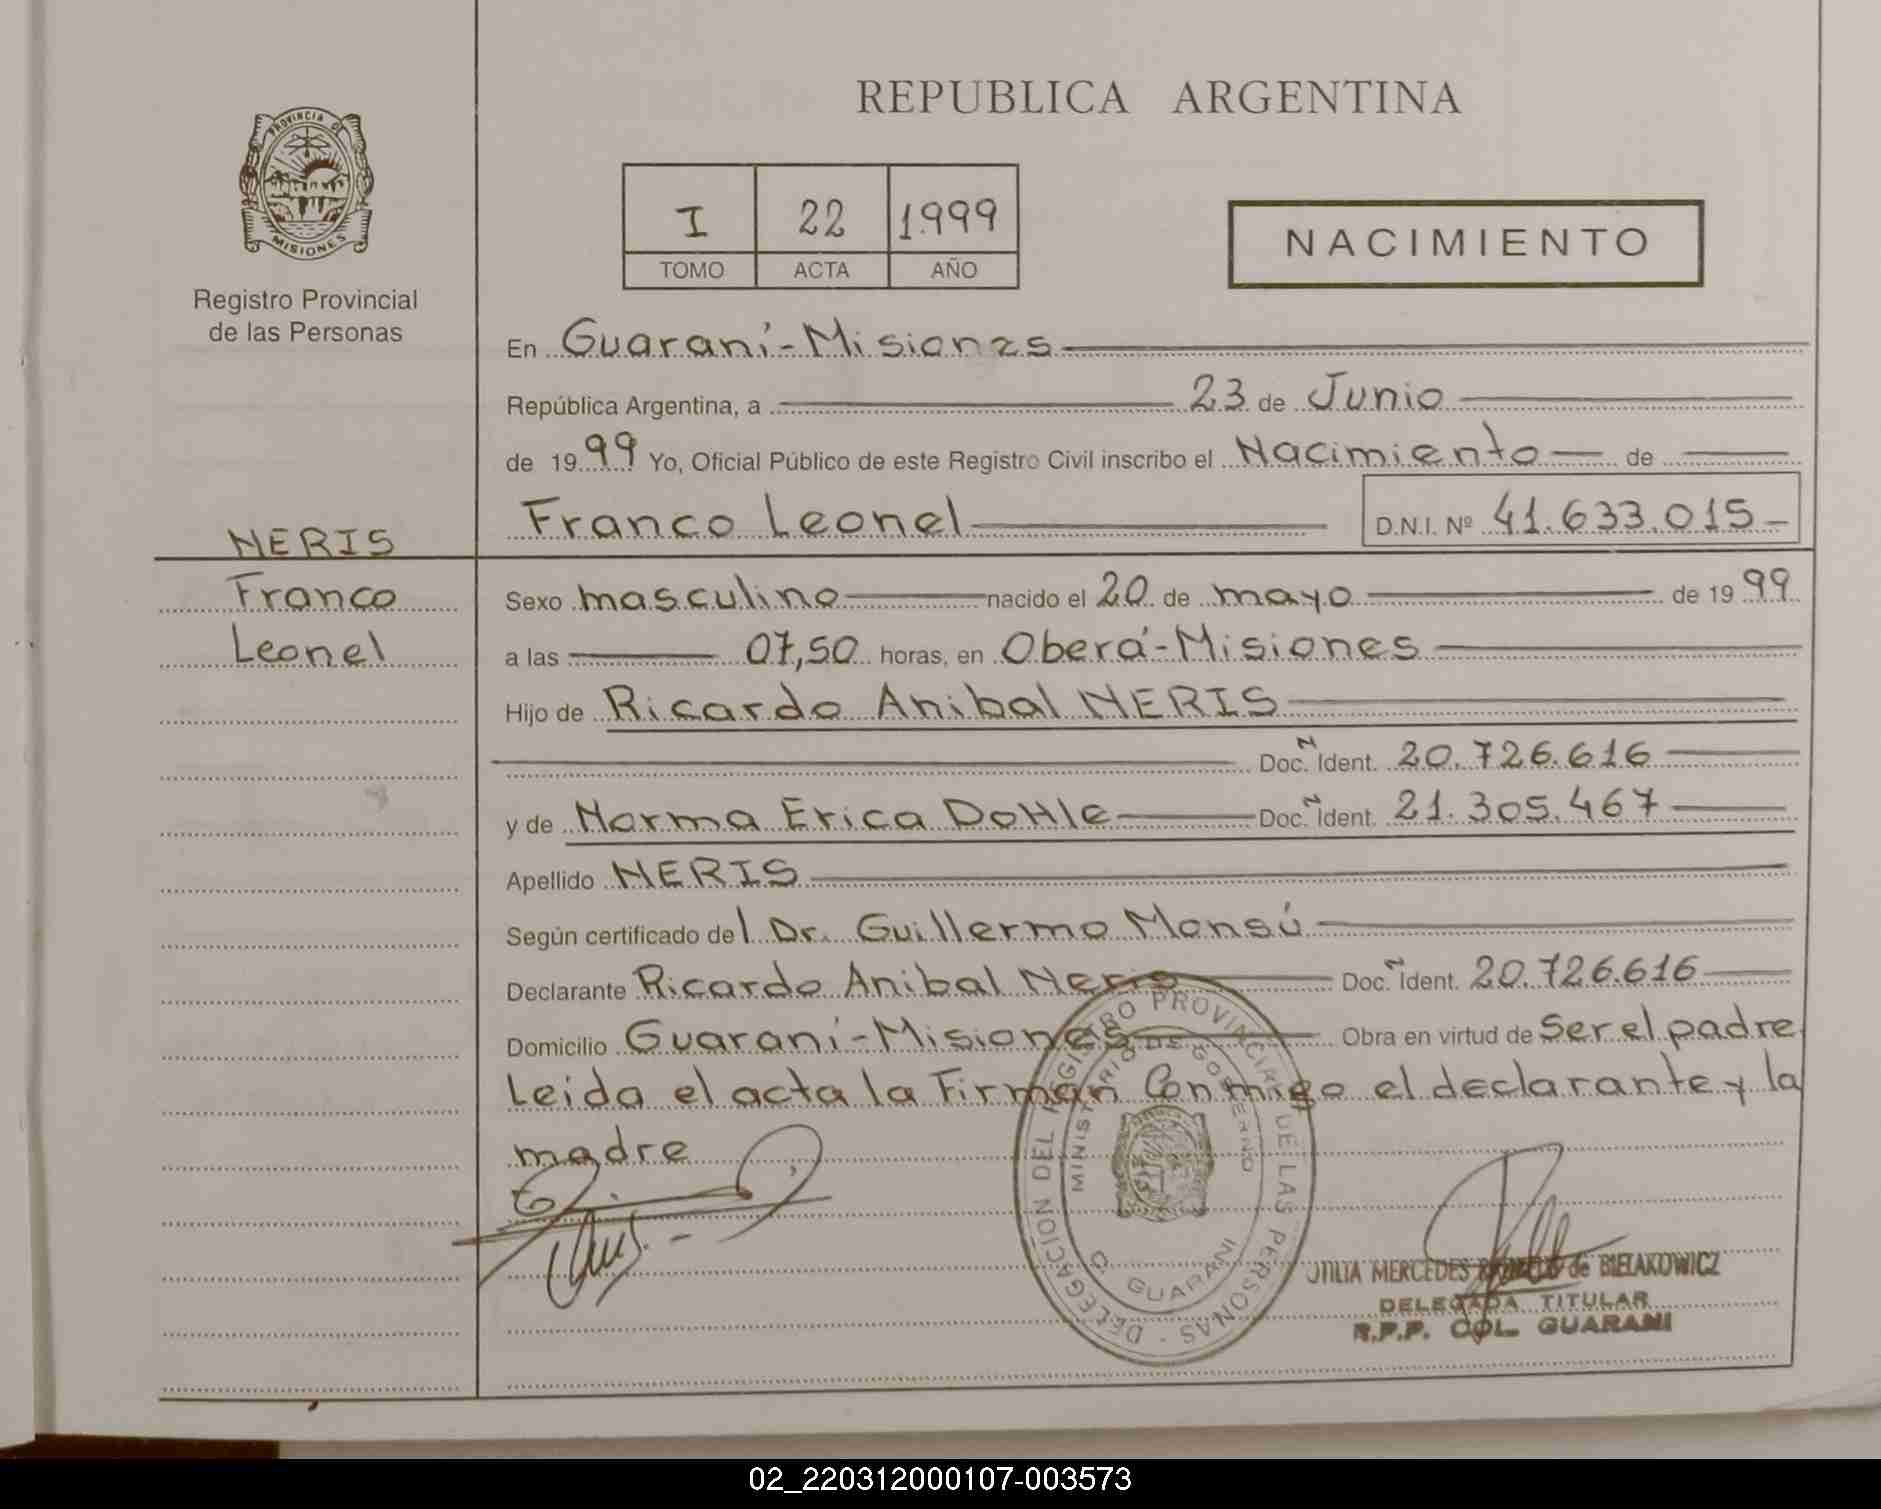 REPUBLICA ARGENTINA
PROVINCIA DE
MISIONES
Registro Provincial
de las Personas
I 22 1.999
TOMO ACTA AÑO
NACIMIENTO
En Guaraní-Misiones
República Argentina, a 23 de Junio
de 1999 Yo, Oficial Público de este Registro Civil inscribo el Nacimiento de
Franco Leonel D.N.I. Nº 41.633.015
NERIS
Franco
Leonel
Sexo masculino nacido el 20 de mayo de 1999
a las 07,50 horas, en Oberá-Misiones
Hijo de Ricardo Anibal NERIS
Doc. Ñ Ident. 20.726.616
y de Norma Erica DoHle Doc. Ñ Ident. 21.305.467
Apellido NERIS
Según certificado del Dr. Guillermo Monsú
Declarante Ricardo Anibal Neris Doc. Ñ Ident. 20.726.616
Domicilio Guaraní-Misiones Obra en virtud de Ser el padre
Leida el acta la Firman Conmigo el declarante y la
madre
DELEGACION DEL REGISTRO PROVINCIAL DE LAS PERSONAS -
MINISTERIO DE GOBIERNO
C. GUARANI
OTILIA MERCEDES de BIELAKOWICZ
DELEGADA TITULAR
R.P.P. COL. GUARANI
02_220312000107-003573